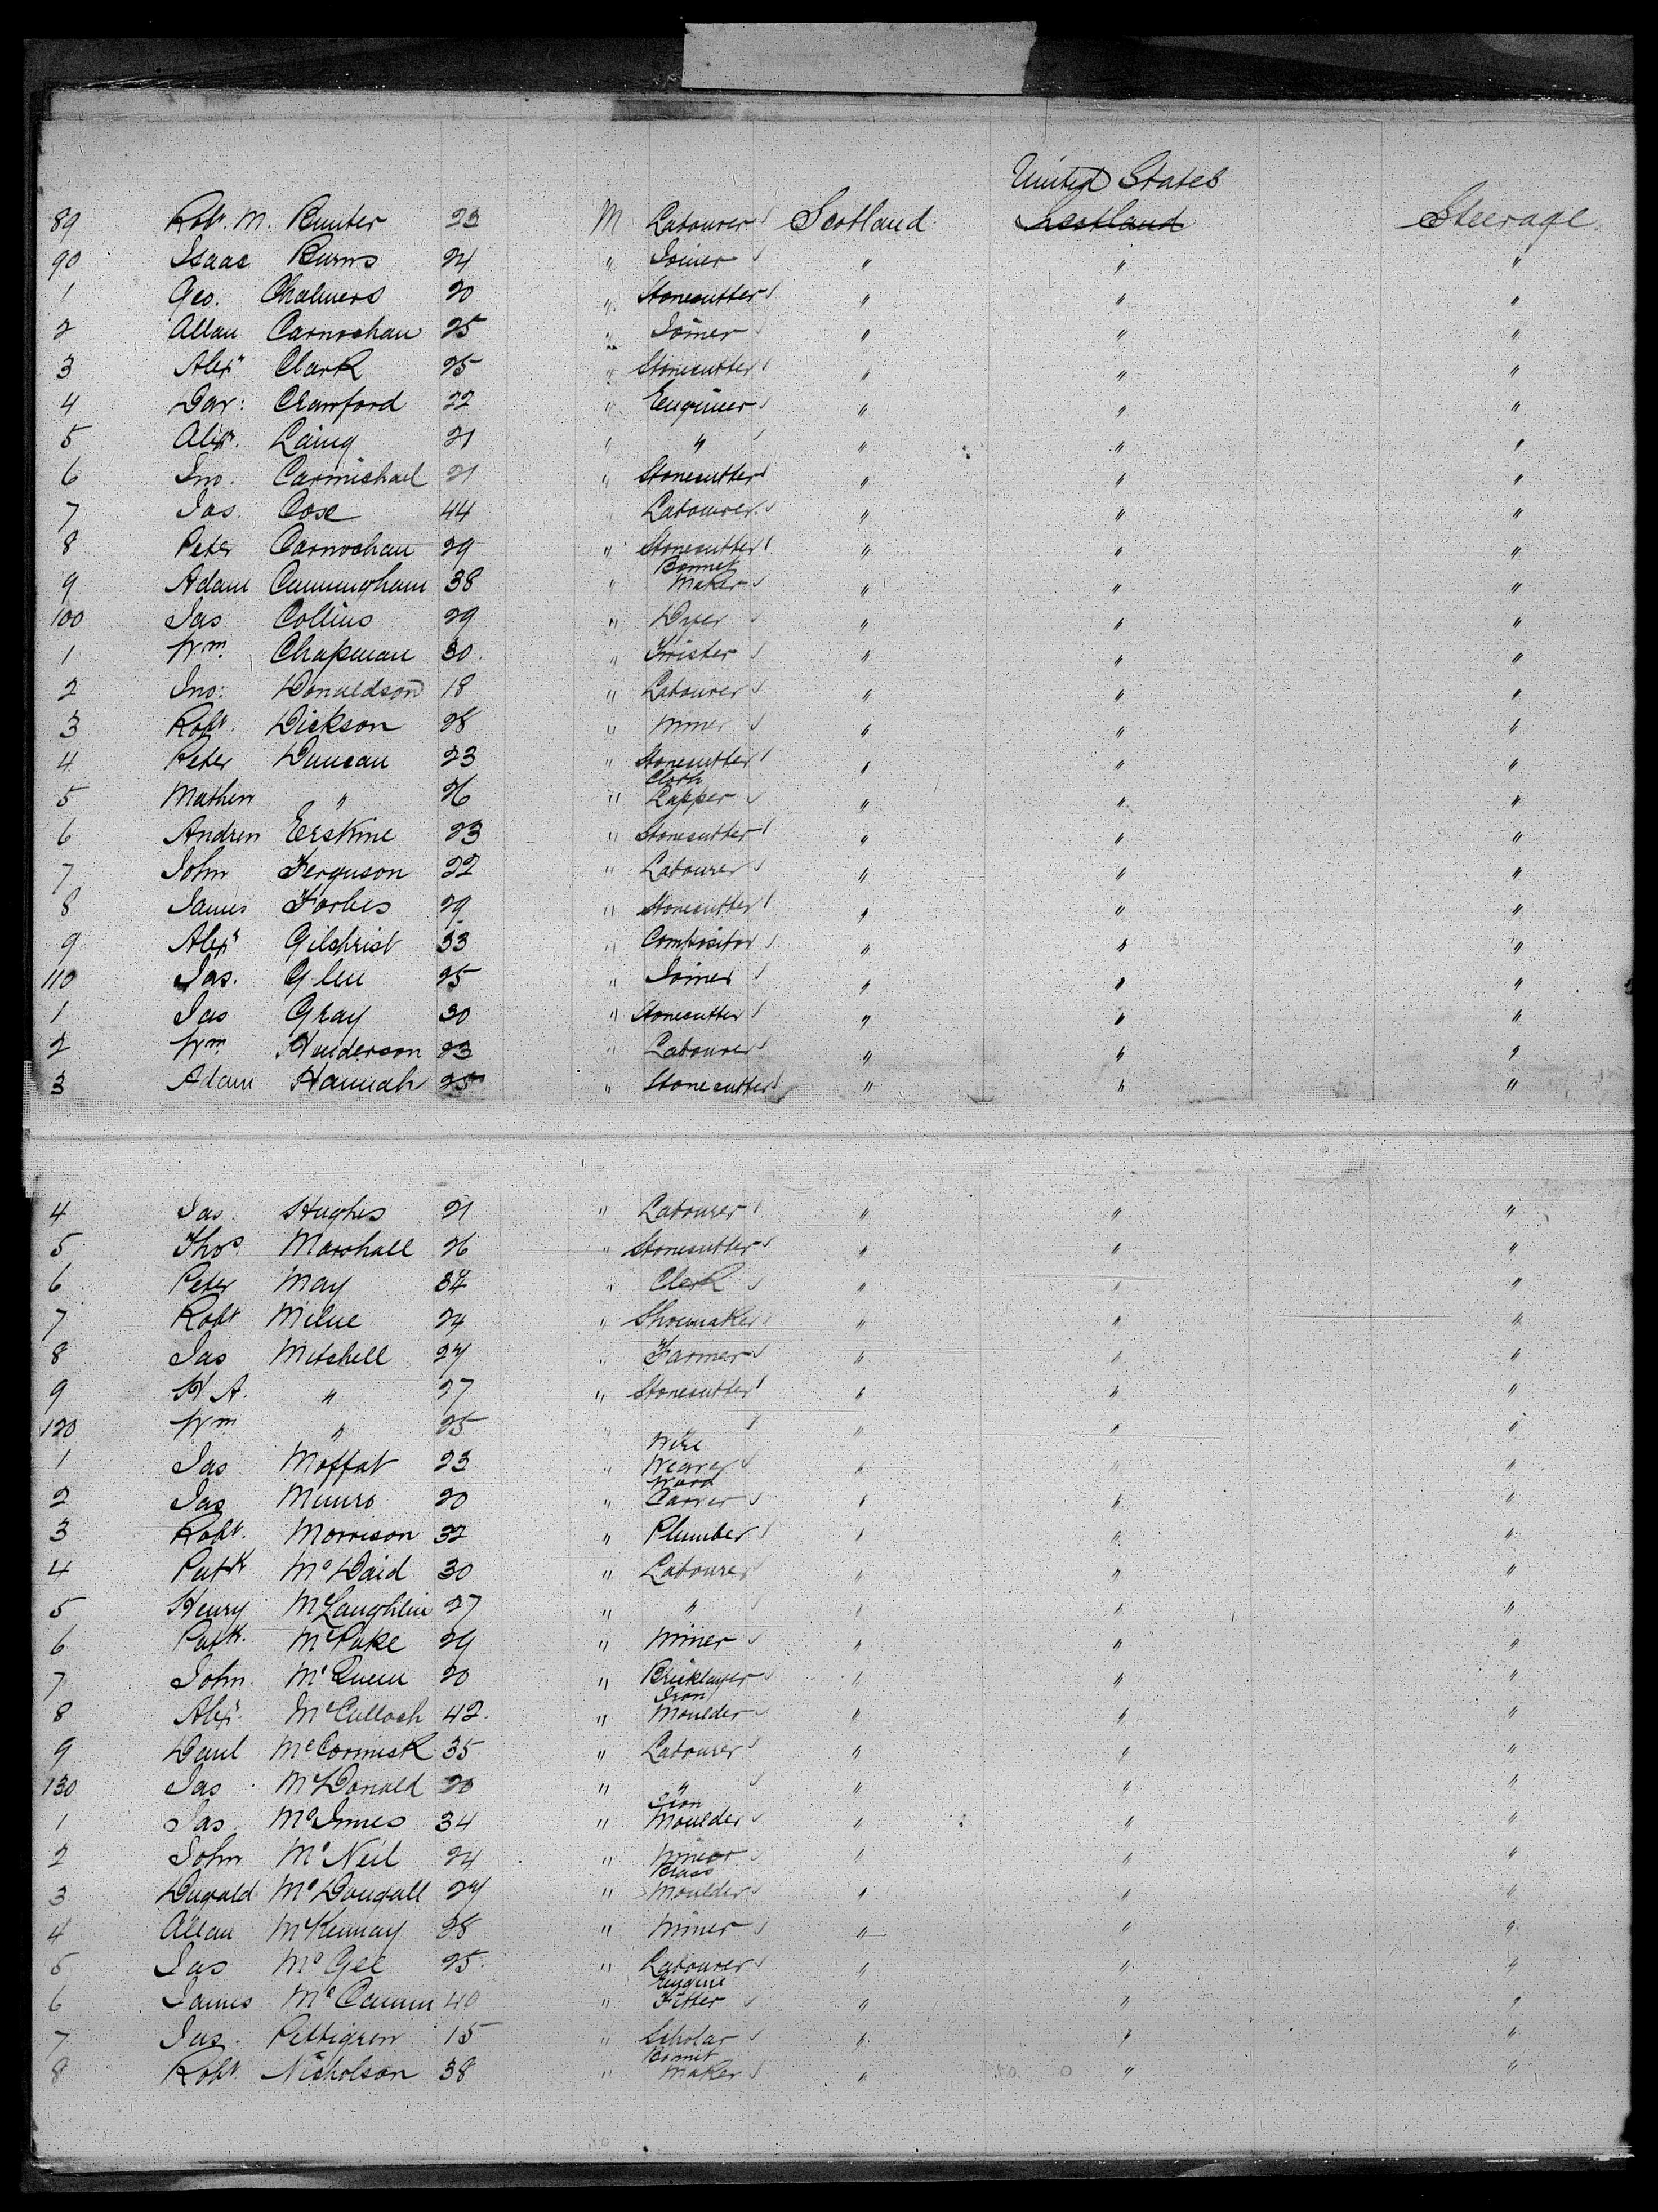 United States
89 Robt. M. Bunter 23 M Labourer Scotland Scotland Steerage
90 Isaac Burns 24 " Joiner " " "
1 Geo. Chalmers 20 " Stonecutter " " "
2 Allan Carnochan 25 " Joiner " " "
3 Alexr Clark 25 " Stonecutter " " "
4 Dav: Crawford 22 " Engineer " " "
5 Alexr. Laing 21 " " " " "
6 Jno. Carmichael 21 " Stonecutter " " "
7 Jas. Cose 44 " Labourer " " "
8 Peter Carnochan 29 " Stonecutter " " "
9 Adam Cunningham 38 " Bonnet Maker " " "
100 Jas Collins 29 " Dyer " " "
1 Wm. Chapman 30. " " " "
2 Jno: Donaldson 18 " Labourer " " "
3 Robt. Dickson 28 " Miner " " "
4 Peter Duncan 23 " Stonecutter " " "
5 Mathew " 26 " Cloth Lapper " " "
6 Andrew Erskine 23 " Stonecutter " " "
7 John Ferguson 22 " Labourer " " "
8 James Forbes 29 " Stonecutter " " "
9 Alexr Gilchrist 33 " Compositor " " "
110 Jas. Glen 25 " Joiner " " "
1 Jas Gray 30 " Stonecutter " " "
2 Wm. Henderson 23 " Labourer " " "
3 Adam Hannah 25 " Stonecutter " " "
4 Jas. Hughes 21 " Labourer " " "
5 Thos. Marshall 26 " Stonecutter " " "
6 Peter May 34 " Clerk " " "
7 Robt Milne 24 " Shoemaker " " "
8 Jas Mitchell 24 " Farmer " " "
9 H A. " 27 " Stonecutter " " "
120 Wm " 25 " " " "
1 Jas Moffat 23 " Wire Weaver " " "
2 Jas Munro 20 " Wood Carver " " "
3 Robt. Morrison 32 " Plumber " " "
4 Patk McDaid 30 " Labourer " " "
5 Henry McLaughlin 27 " " " " "
6 Patk. McPake 29 " Miner " " "
7 John McQueen 20 " Bricklayer " " "
8 Alexr. McCulloch 42. " Iron Moulder " " "
9 Danl McCormick 35 " Labourer " " "
130 Jas McDonald 20 " " " " "
1 Jas McInnes 34 " Iron Moulder " " "
2 John McNeil 24 " Miner " " "
3 Dugald McDougall 24 " Brass Moulder " " "
4 Allan McKenney 28 " Miner " " "
5 Jas McGee 25. " Labourer " " "
6 James McCamm 40 " Engine Fitter " " "
7 Jas. Pettigrew 15 " Scholar " " "
8 Robt. Nicholson 38 " Bonnet Maker " " "